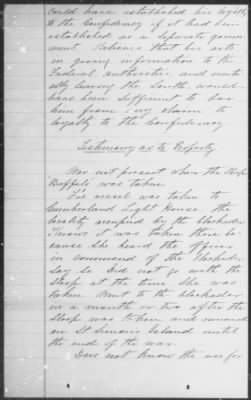 could have established his loyalty
to the Confederacy if it had been
established as a separate govern
ment. Believes that his acts
in giving information to the
Federal authorities, and event
ually leaving the South, would
have been sufficient to bar
him from any claim to
loyalty to the Confederacy
Testimony as to Property
Was not present when the Sloop
Buffalo was taken.
The vessel was taken to
Cumberland Light House the
locality occupied by the blockader
Knows it was taken there be
cause she heard the officer
in command of the blockader
say so. Did not go with the
Sloop at the time she was
taken. Went to the blockader
in a month or two after the
Sloop was taken, and remained
on St Simons Island until
the end of the war.
Does not know the use for